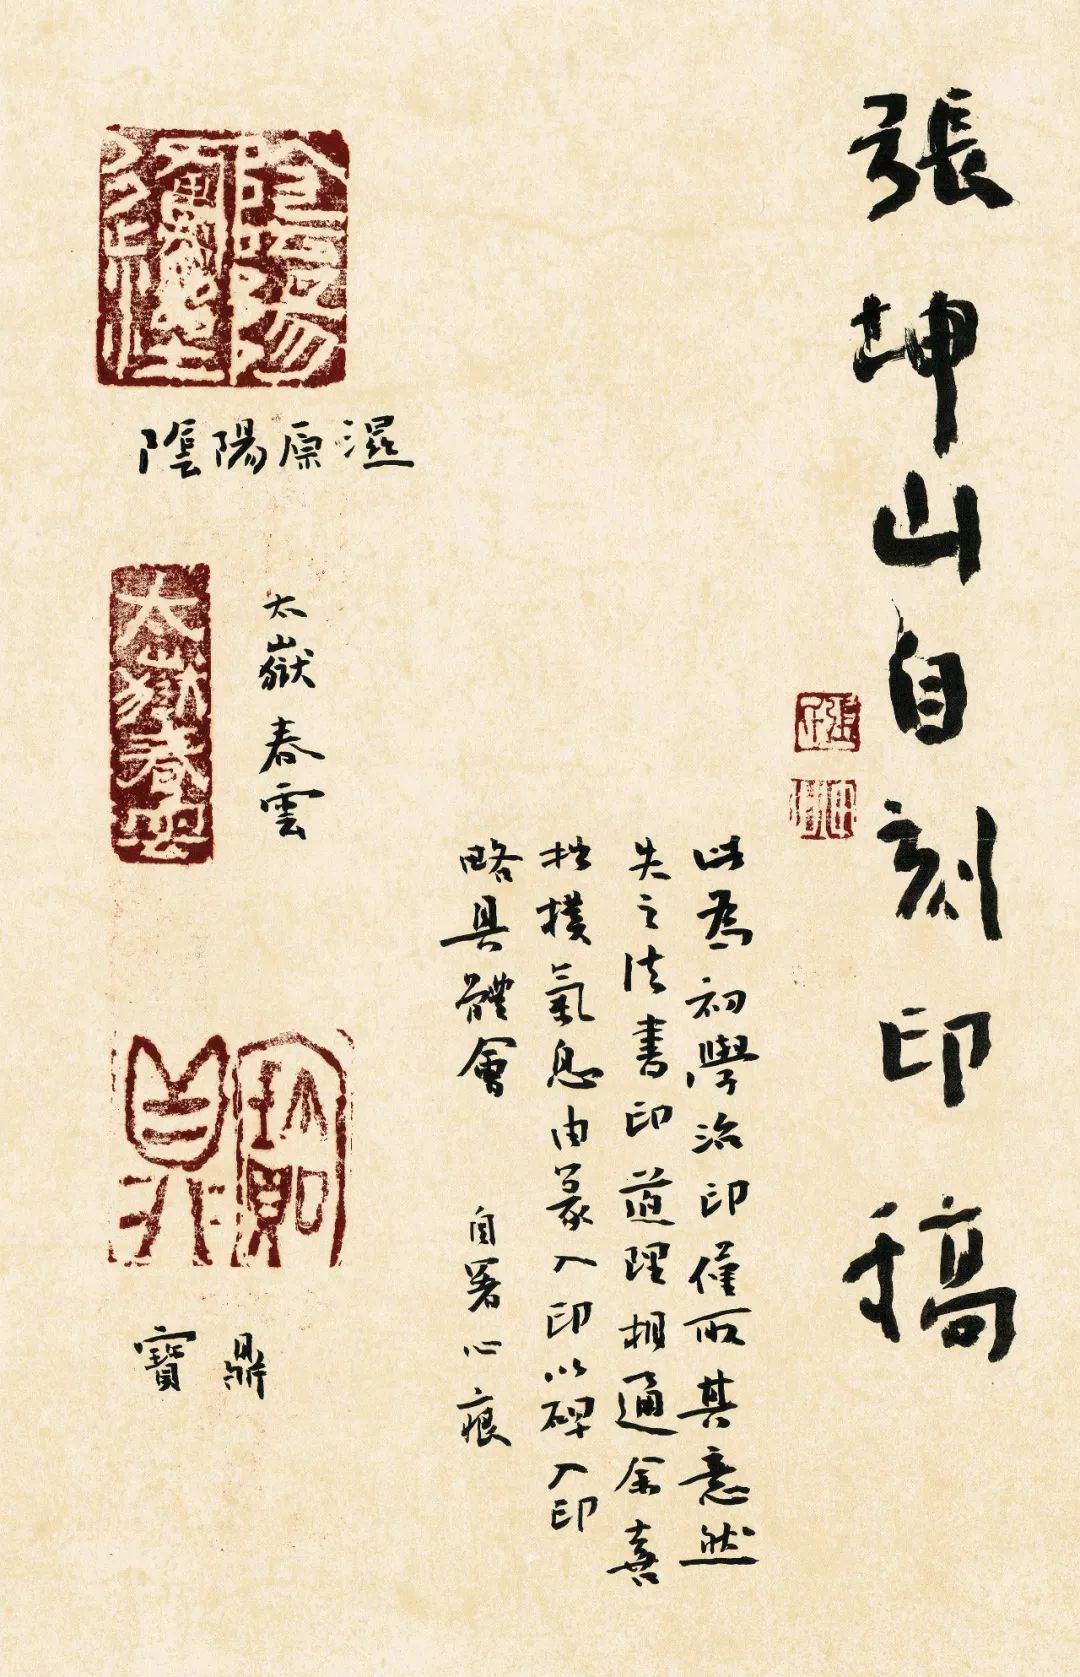 張坤山自刻印稿
此為初學治印僅取其意然
失之法書印道理相通余喜
拙樸氣息由篆入印以碑入印
略具體會 自署心痕
陰陽原濕
太嶽春雲
太嶽春雲
寶鼎
寶鼎